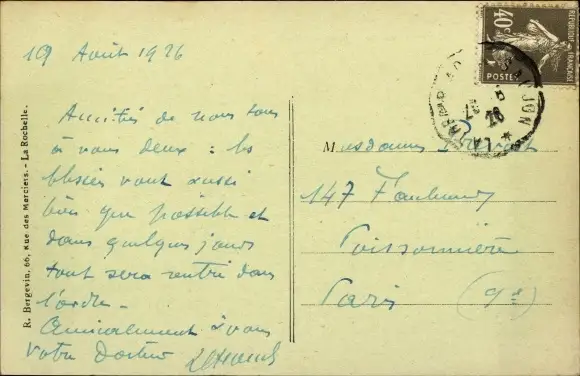 19 Août 1926
Amitiés de nous tous
à vous deux : les
blessés vont aussi
bien que possible et
dans quelques jours
tout sera rentré dans
l'ordre -
Amicalement à vous
Votre Docteur
Mesdames
147 Faubourg
Poissonnière
Paris (9e)
R. Bergevin, 66, Rue des Merciers. - La Rochelle.
40c
REPUBLIQUE FRANÇAISE
POSTES
SAUJON
26